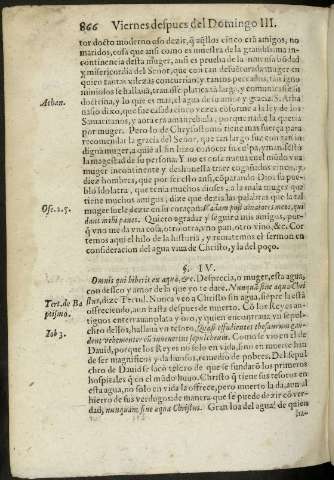 866 Viernes despues del Domingo III.
tor docto moderno oso dezir, q̃ aq̃llos cinco erã amigos, no
maridos, cosa que ansi como es muestra de la grandissima in-
continencia desta muger, ansi es prueba de la inmensa bõdad
y misericordia del Señor, que con tan desuenturada muger en
quien tantas vilezas concurren, y tancos pecados, tan igno
miniosos se hallauã, trauasse platica tã larga, y comunicasse su
Athan. doctrina, y lo que es mas, el agua de su amor y gracia. S. Atha
nasio dixo, que fue casada cinco vezes cõforme a la ley de los
Samaritanos, y aora era amancebada, porque nadie la queria
por muger. Pero lo de Chrysostomo tiene mas fuerça para
recomendar la gracia del Señor, que tan largo fue con tan in-
digna muger, a quiē al fin hizo conocer su culpa, y manifestó
la magestad de su persona. Y no es cosa nueua en el mũdo vna
muger incontinente y deshonesta traer engañados cinco, y
diez hombres, que por ser esto ansi, cõparando Dios su pue-
blo idolatra, que tenia muchos dioses, a la mala muger que
tiene muchos amigos, dize que dezia las palabras que la tal
Ose. 2. 5. muger suele dezir en su coraçon: Vadam post amatores meos, qui
dant mihi panes. Quiero agradar y seguir a mis amigos, pur-
q̃ vno me da vna cosa, otro otra, vno pan, otro vino, &c. Cor
temos aqui el hilo de la historia, y rematemos el sermon en
consideracion del agua viua de Christo, y la del poço.
§. IV.
Omnis qui biberit ex aqua, &c. Desprecia, o muger, esta agua,
con desseo y amor de la que yo te daré. Nunquã sine aqua Chri
Tert. de Ba stus, dize Tertul. Nunca veo a Christo sin agua, siẽpre la està
ptismo. offreciendo, aun hasta despues de muerto. Cõ los Reyes an-
tiguos enterrauan plata y oro, y quien encontraua vn sepul-
Iob 3. chro dellos, hallaua vn tesoro. Quasi effodientes thesaurum gau-
dent vehementer cũ inuenerint sepulchrum. Como se vio en el de
Dauid, porque los Reyes no solo en vida, sino en muerte han
de ser magnificos y dadiuosos, remedio de pobres. Del sepul-
chro de Dauid se sacò tesoro de que se fundarõ los primeros
hospitales q̃ en el mũdo huuo. Christo q̃ tiene sus tesoros en
esta agua, no solo en vida la offrece, pero muerto la da, aun al
hierro de sus verdugos: de manera que se puede dezir cõ ver-
dad, nunquam sine aqua Christus. Gran loa del agua! de quien